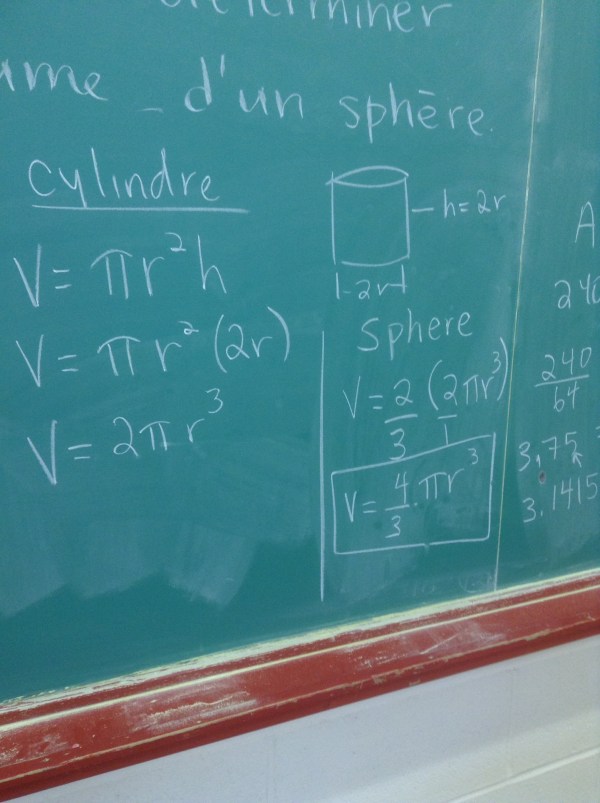 déterminer
ume - d'un sphère.
Cylindre
V = πr²h
V = πr² (2r)
V = 2πr³
h = 2r
|-2r-|
Sphere
V = 2/3 (2πr³/1)
V = 4/3 · πr³
A
240
240/64
3.75 =
3.1415